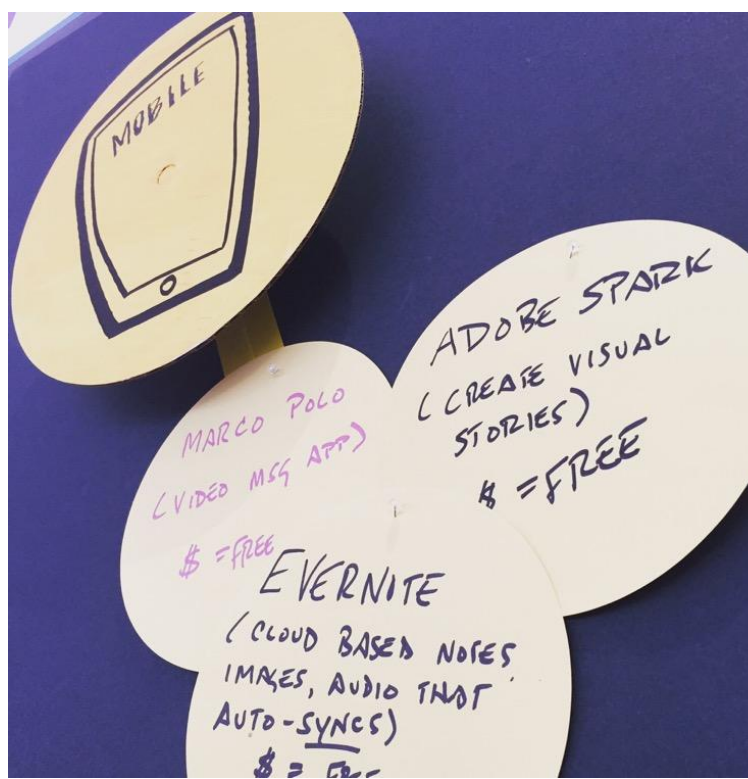 MOBILE
MARCO POLO
(VIDEO MSG APP)
$ = FREE
ADOBE SPARK
(CREATE VISUAL
STORIES)
$ = FREE
EVERNITE
(CLOUD BASED NOTES
IMAGES, AUDIO THAT
AUTO-SYNCS)
$ = FREE